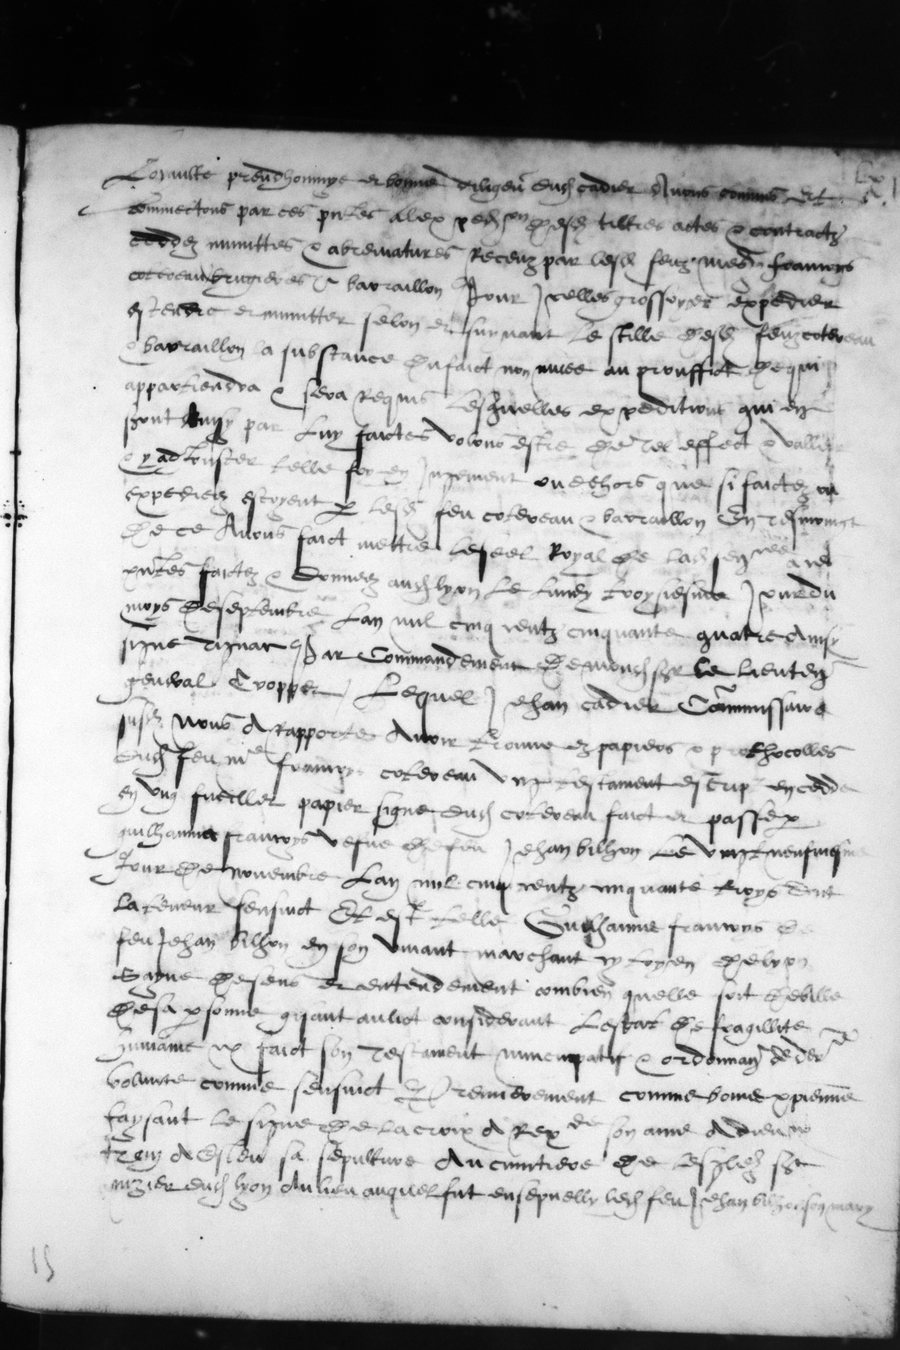 Loyaulte preudhommye et bonne diligen dud cadier Avons commis Et
commectons par ces pntes a lexped on desd tiltres actes & contractz
cedez minuttes & abreviatures Receuz par lesd feuz mes francoys
cotereau brugieres & barraillon Pour Icelles grossoyer expedier
estendre et minutter selon et suyvant le stille desd feuz cotereau
& barraillon la substance du faict non muee au prouffict de qui
appartiendra & sera Requis Lesquelles expeditions qui en
seront Ainsy par Luy faictes voulons estre de tel effect & valleur
& y adjouster telle foy en Jugement que dehors que si faictes ou
expediees estoyent p lesd feu cotereau & barraillon En tesmoingt
de ce Avons faict mettre le seel Royal de lad sen a ces
pntes faictes & donnees aud lyon Le lundy troysiesme Jour du
moys de septembre Lan mil cinq centz cinquante quatre Ainsy
signe Par Commandement de mond sr le lieuten
general Cropper Lequel Jehan cadier Commissaire
susd Nous A Rapporte Avoir trouve ez papiers & prothocolles
dud feu me francoys cotereau ung testament escript en cedde
en ung fueillet papier signe dud cotereau faict et passe p
guilhaume francoys vefve de feu Jehan bilhon Le vingtneufiesme
Jour de Novembre Lan mil cinq centz cinquante troys dont
La teneur sensuict Et est telle Guilhaume francoys de
feu Jehan bilhon en son vivant marchant cytoyen de lyon
Sayne de sens et entendement combien quelle soit debille
de sa psonne gisant au lict considerant Lestat de fragillite
humaine a faict son testament nuncupatif & ordonnan de der
volunte comme sensuict Et Premierement comme bonne xpienne
faysant le signe de la croix A Rex de son ame A dieu
A Esleu sa sepulture Au cimitiere de Lesglize sr
nizier dud lyon Au lieu auquel fut ensepvelly led feu Jehan bilhon son mary
15